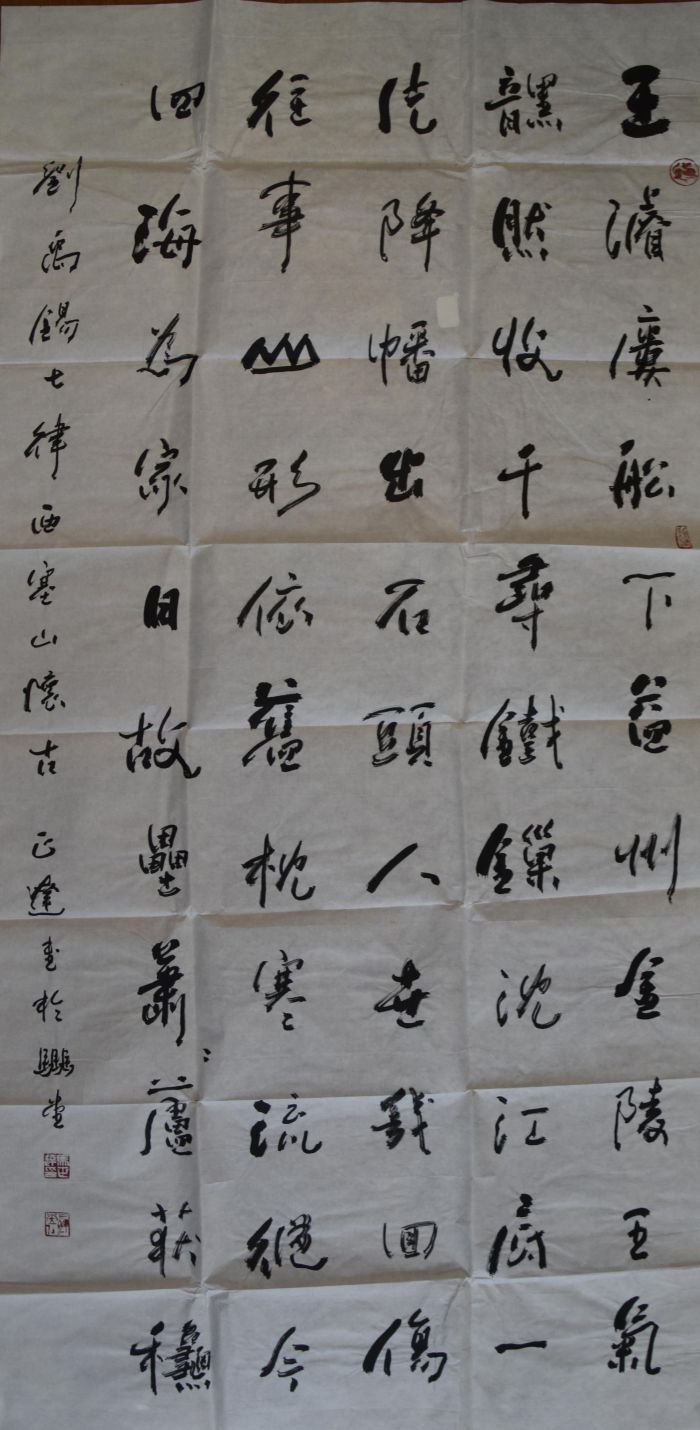 王濬樓船下益州金陵王氣
黯然收千尋鐵鏁沈江底一
片降幡出石頭人世幾回傷
往事山形依舊枕寒流從今
四海為家日故壘蕭〻蘆荻龝
劉禹錫七律西塞山懷古 正達書於堂